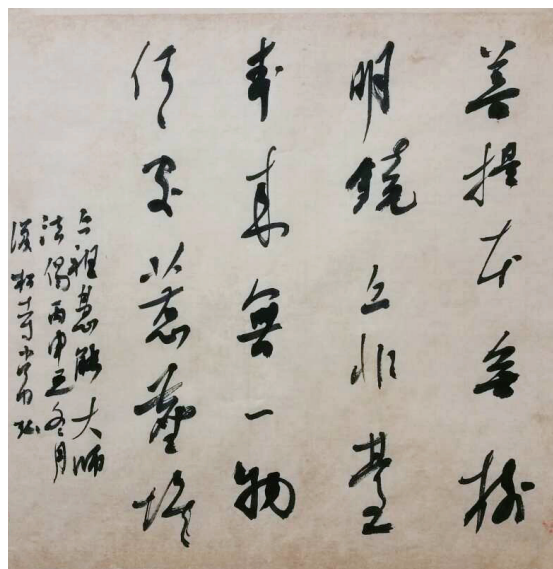 菩提本無樹
明鏡亦非臺
本来無一物
何處惹塵埃
六祖慧能大師
法偈丙申冬月